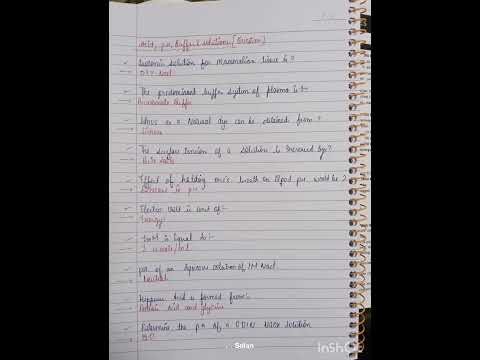 Acid, pH, Buffer & Solutions [Question]
Isotonic solution for mammalian tissue is?
0.9% NaCl
The predominant buffer system of plasma is :-
Bicarbonate Buffer
as a Natural dye can be obtained from?
The surface tension of a solution is Increased by?
Bile Salts
Effect of holding one's breath on Blood pH would be?
Decrease in pH
Electron Volt is unit of :-
Energy
1mM is Equal to :-
1 umole/ml
pH of an Aqueous solution of 1M NaCl
Neutral
Hippuric Acid is formed from :-
Benzoic Acid and Glycine
Determine the pH of a 0.01N NaOH solution
Solan
InShO